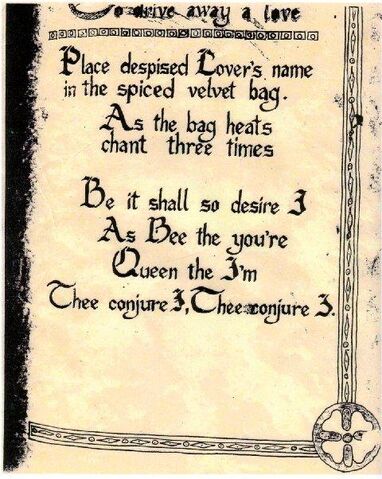 To drive away a love
Place despised Lover's name
in the spiced velvet bag.
As the bag heats
chant three times
Be it shall so desire I
As Bee the you're
Queen the I'm
Thee conjure I, Thee conjure I.